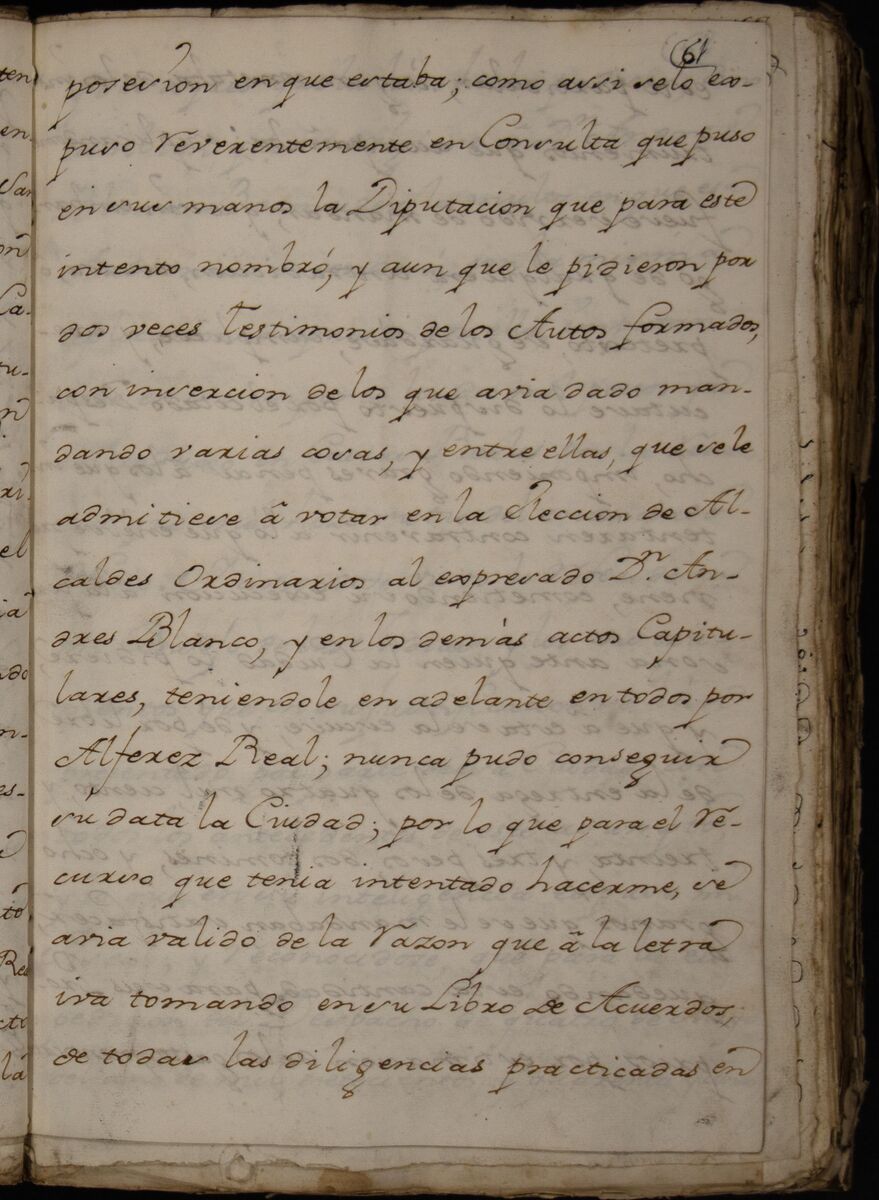 61
posesion en que estaba; como assi selo ex-
puso Reverentemente en Consulta que puso
en sus manos la Diputacion que para este
intento nombró, y aun que le pidieron por
dos veces testimonios de los Autos formados,
con insercion de los que avia dado man-
dando varias cosas, y entre ellas, que se le
admitiese â votar en la Eleccion de Al-
caldes Ordinarios al expresado Dn. An-
dres Blanco, y en los demàs actos Capitu-
lares, teniendole en adelante en todos por
Alferez Real; nunca pudo conseguir
su data la Ciudad; por lo que para el Re-
curso que tenia intentado hacerme, se
avia valido de la Razon que â la letra
iva tomando en su Libro de Acuerdos,
de todas las diligencias practicadas en